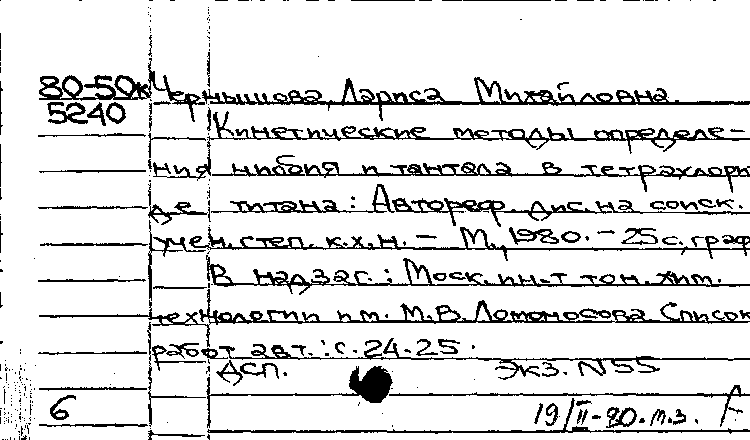 80-50к
5240
Чернышова, Лариса Михайловна.
Кинетические методы определе-
ния ниобия и тантала в тетрахлори
де титана: Автореф. дис. на соиск.
учен. степ. к.х.н. - М., 1980. - 25 с., граф
В надзаг.: Моск. ин-т тон. хим.
технологии им. М.В. Ломоносова. Список
работ авт.: с. 24-25.
ДСП. Экз. N55
6 19/II-80. м.з.